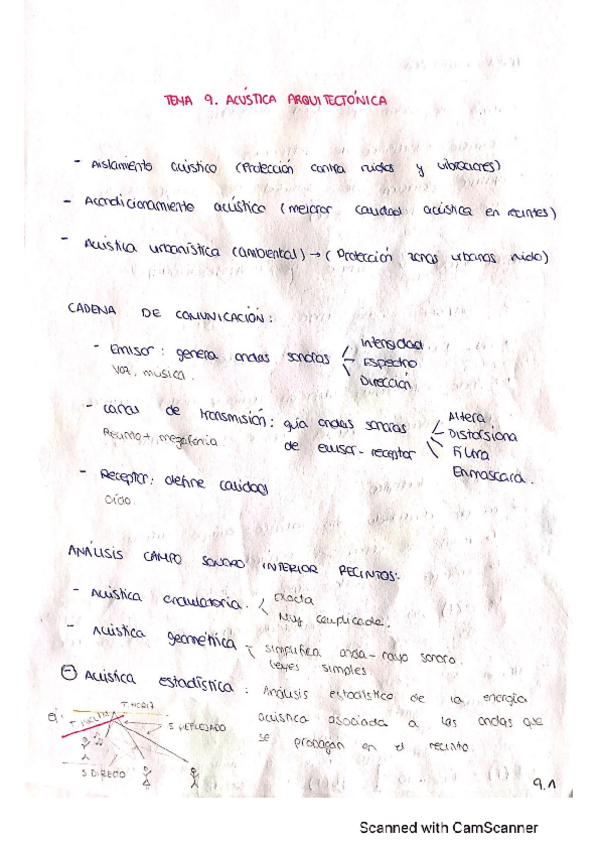 TEMA 9. ACÚSTICA ARQUITECTÓNICA
- Aislamiento acústico (Protección contra ruidos y vibraciones)
- Acondicionamiento acústico (mejorar calidad acústica en recintos)
- Acústica urbanística (ambiental) → (Protección zonas urbanas ruido)
CADENA DE COMUNICACIÓN:
- Emisor: genera ondas sonoras
Intensidad
Espectro
Dirección
Voz, musica.
- canal de transmisión: guía ondas sonoras
de emisor-receptor
Altera
Distorsiona
Filtra
Enmascara.
Recinto +, megafonia
- Receptor: define calidad
Oído.
ANÁLISIS CAMPO SONORO INTERIOR RECINTOS:
- Acústica ondulatoria.
exacta
Muy complicada.
- Acústica geométrica
simplifica onda-rayo sonoro.
leyes simples
- Acústica estadística: Análisis estadístico de la energía
acústica asociada a las ondas que
se propagan en el recinto.
ej:
S REFLEJADO
S DIRECTO
9.1
Scanned with CamScanner